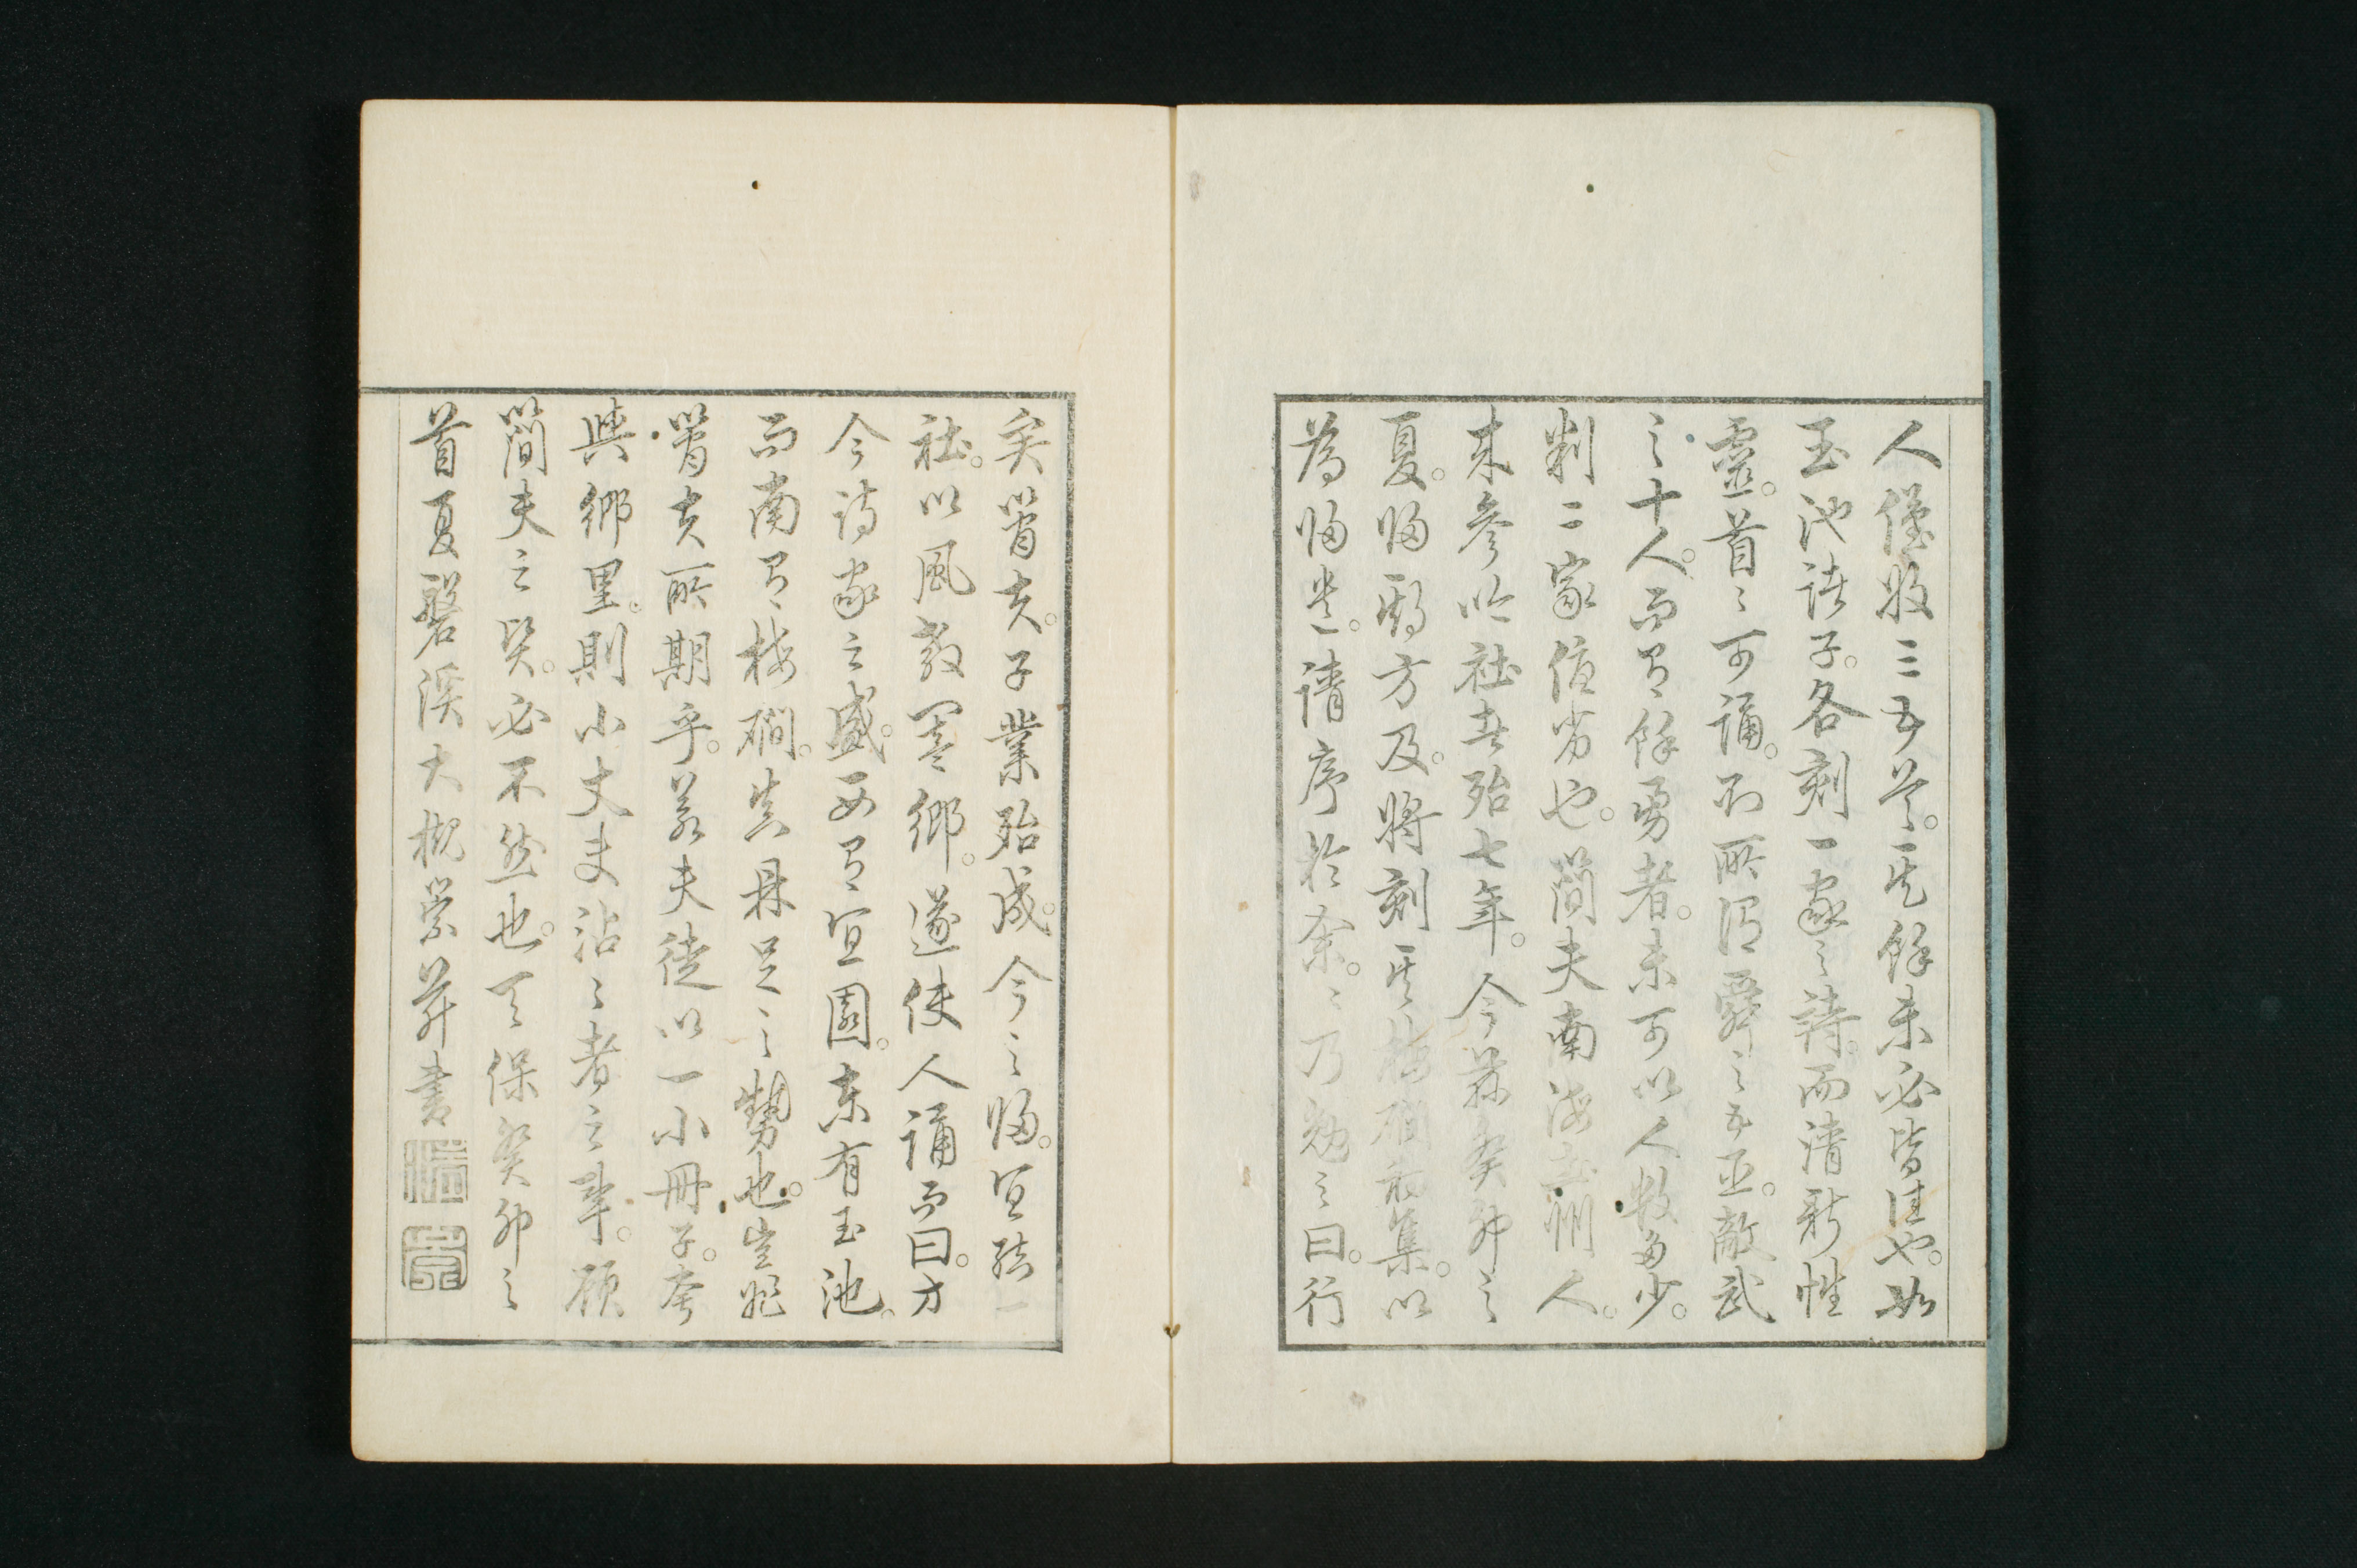 人僅收三五首。其餘未必皆佳也。如
玉池諸子。各刻一家之詩。而清新性
靈。首々可誦。不所謂舜之五臣。敵武
之十人。而有餘勇者。未可以人數多少。
判二家優劣也。簡夫南海土州人。
來參吟社壬殆七年。今茲癸卯之
夏。歸期方及。將刻其梅磵初集。以
為歸裝。請序於余。々乃勉之曰。行
矣簡夫。子業殆成。今之歸。宜結一
社。以風教寒鄉。遂使人誦而曰。方
今詩家之盛。西有宜園。東有玉池。
而南有梅磵。共鼎足之勢也。豈非
簡夫所期乎。若夫徒以一小冊子。夸
與鄉里。則小丈夫沾々者之事。顧
簡夫之賢。必不然也。天保癸卯之
首夏磐溪大槻崇并書